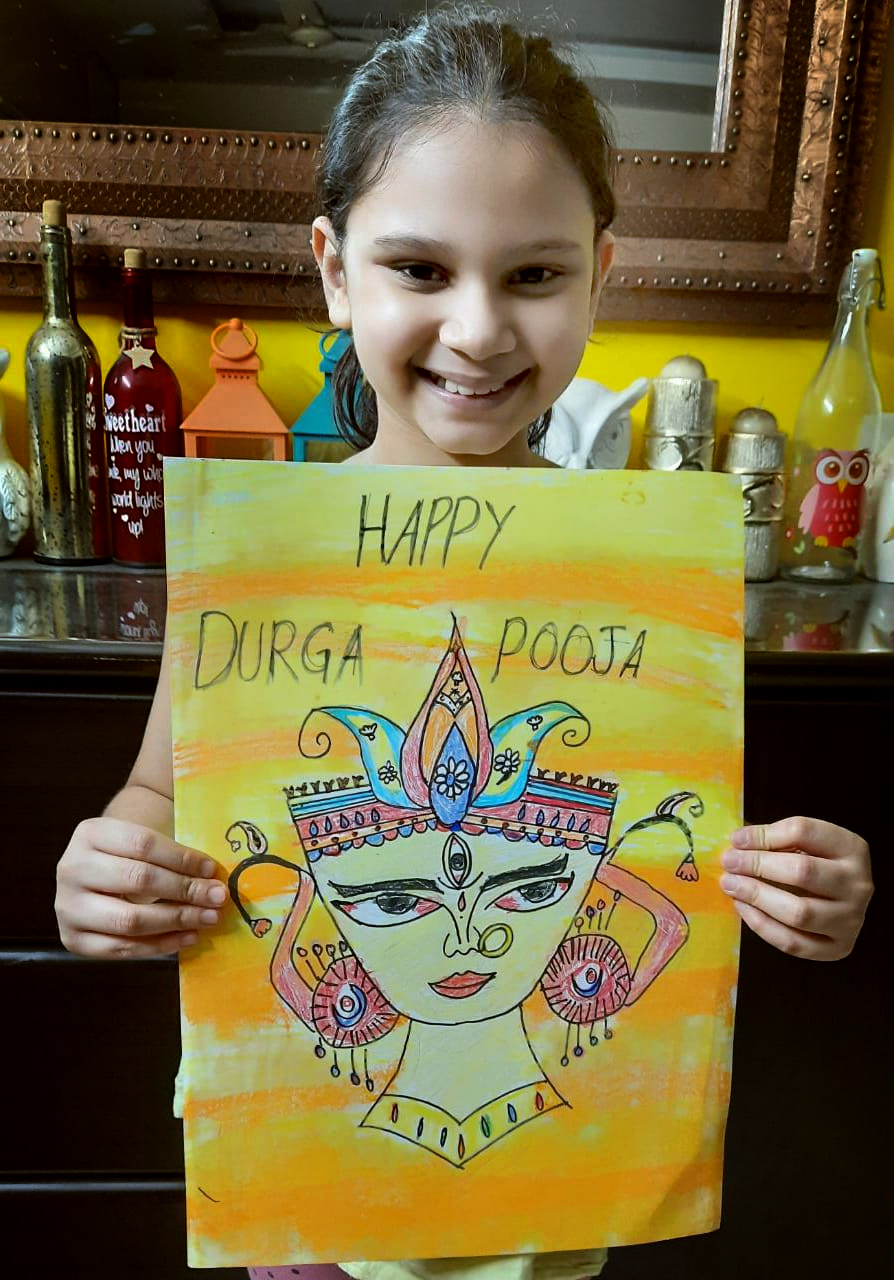 HAPPY
DURGA POOJA
Sweetheart
When you
my
world lights
up!